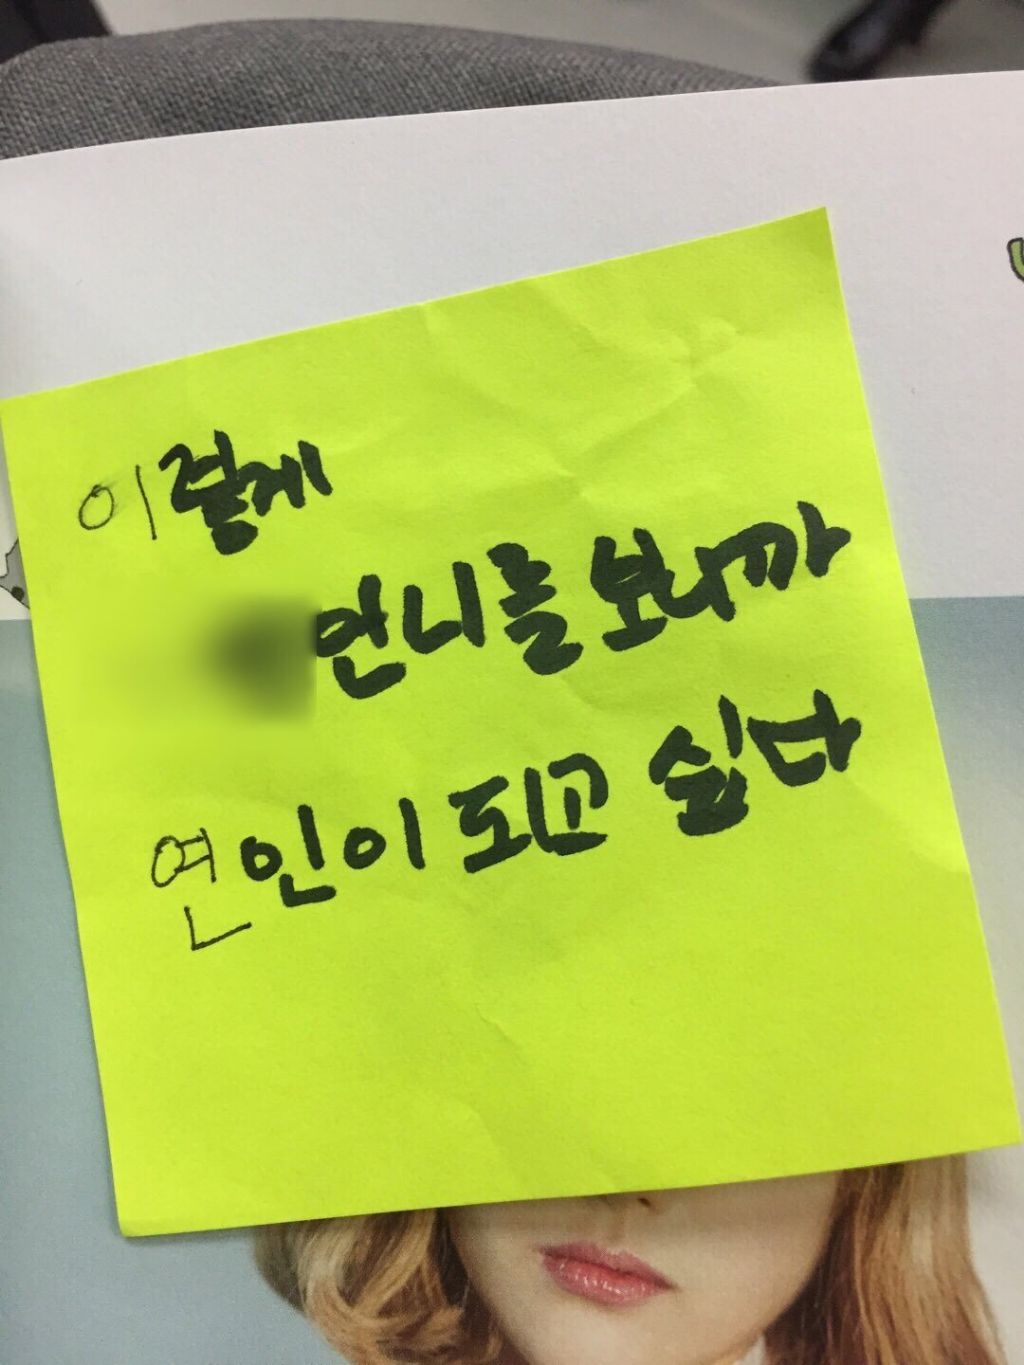 이렇게
언니를 보니까
연인이 되고 싶다